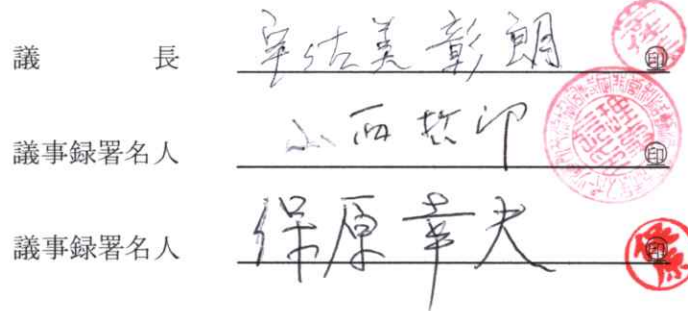 議　　　長 宇佐美彰朗 ㊞
議事録署名人 小西哲 ㊞
議事録署名人 保原幸夫 ㊞